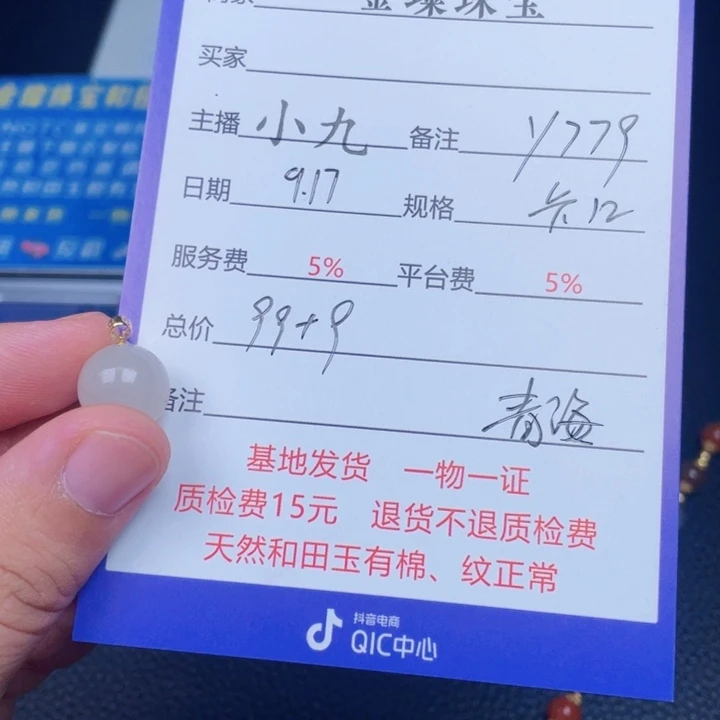 金璨珠宝
买家
主播 小九 备注 Y779
日期 9.17 规格 卡12
服务费 5% 平台费 5%
总价 99+9
备注 青海
基地发货 一物一证
质检费15元 退货不退质检费
天然和田玉有棉、纹正常
抖音电商
QIC中心